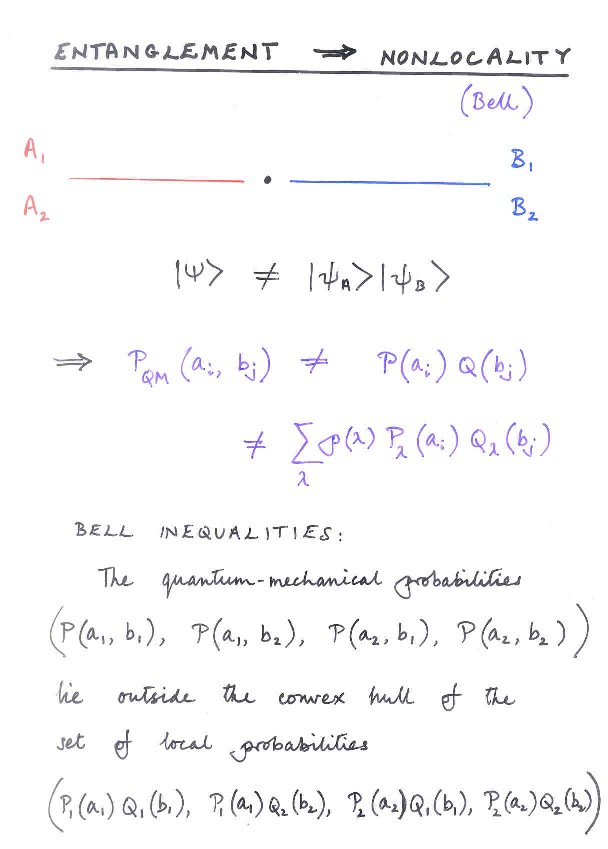 ENTANGLEMENT ⇒ NONLOCALITY
(Bell)
A₁ B₁
A₂ B₂
|Ψ> ≠ |ψ_A>|ψ_B>
⇒ P_QM (aᵢ, bⱼ) ≠ P(aᵢ) Q(bⱼ)
≠ ∑_λ ρ(λ) P_λ (aᵢ) Q_λ (bⱼ)
BELL INEQUALITIES:
The quantum-mechanical probabilities
(P(a₁, b₁), P(a₁, b₂), P(a₂, b₁), P(a₂, b₂))
lie outside the convex hull of the
set of local probabilities
(P₁(a₁) Q₁(b₁), P₁(a₁) Q₂(b₂), P₂(a₂) Q₁(b₁), P₂(a₂) Q₂(b₂))